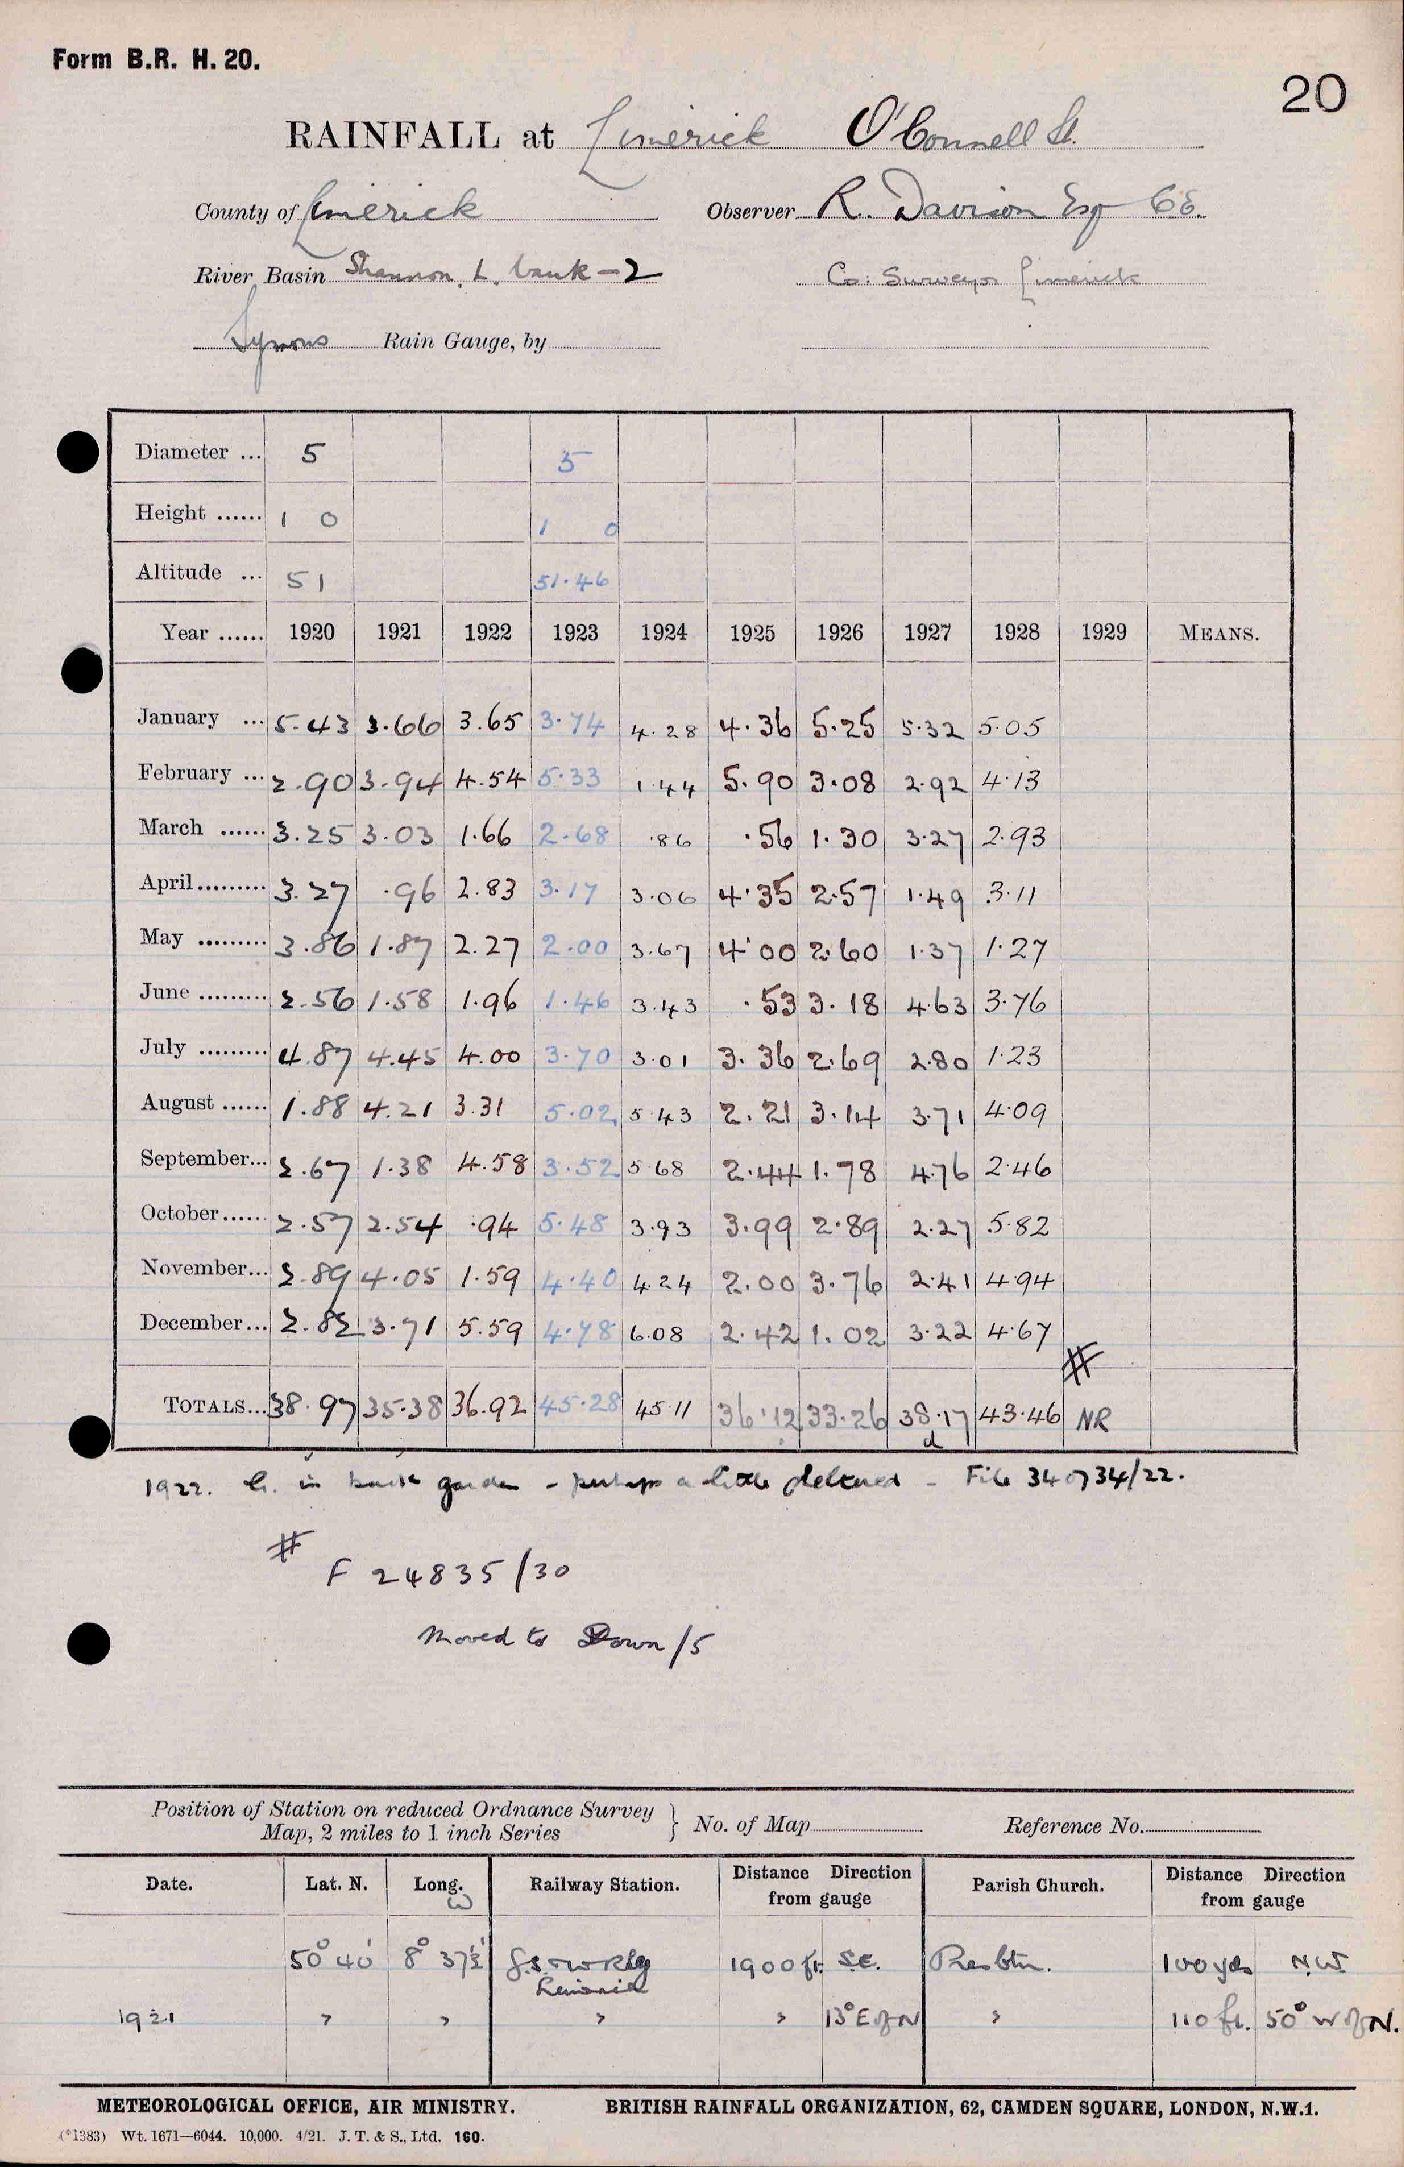 Form B.R. H. 20.
20
RAINFALL at Limerick O'Connell St.
County of Limerick Observer R. Davison Esq CE.
River Basin Shannon. L. bank - 2 Co: Surveyor Limerick
Symons Rain Gauge, by
Diameter ... 5 5
Height ...... 1 0 1 0
Altitude ... 51 51.46
Year ...... 1920 1921 1922 1923 1924 1925 1926 1927 1928 1929 MEANS.
January ... 5.43 3.66 3.65 3.74 4.28 4.36 5.25 5.32 5.05
February ... 2.90 3.94 4.54 5.33 1.44 5.90 3.08 2.92 4.13
March ...... 3.25 3.03 1.66 2.68 .86 .56 1.30 3.27 2.93
April ......... 3.27 .96 2.83 3.17 3.06 4.35 2.57 1.49 3.11
May ......... 3.86 1.87 2.27 2.00 3.67 4.00 2.60 1.37 1.27
June ......... 2.56 1.58 1.96 1.46 3.43 .53 3.18 4.63 3.76
July ......... 4.87 4.45 4.00 3.70 3.01 3.36 2.69 2.80 1.23
August ...... 1.88 4.21 3.31 5.02 5.43 2.21 3.14 3.71 4.09
September... 2.67 1.38 4.58 3.52 5.68 2.44 1.78 4.76 2.46
October...... 2.57 2.54 .94 5.48 3.93 3.99 2.89 2.27 5.82
November... 2.89 4.05 1.59 4.40 4.24 2.00 3.76 2.41 4.94
December... 2.82 3.71 5.59 4.78 6.08 2.42 1.02 3.22 4.67
#
TOTALS... 38.97 35.38 36.92 45.28 45.11 36.12 33.26 38.17 43.46 NR
d
1922. G. in back garden - perhaps a little sheltered - File 340734/22.
# F 24835/30
Moved to Down/5
Position of Station on reduced Ordnance Survey
Map, 2 miles to 1 inch Series } No. of Map Reference No.
Date. Lat. N. Long. W Railway Station. Distance Direction from gauge Parish Church. Distance Direction from gauge
50° 40' 8° 37½' G.S. & W Rly Limerick 1900 ft. S.E. Presbtn. 100 yds N.W.
1921 " " " " 13° E of N " 110 ft. 50° W of N.
METEOROLOGICAL OFFICE, AIR MINISTRY. BRITISH RAINFALL ORGANIZATION, 62, CAMDEN SQUARE, LONDON, N.W.1.
(*1383) Wt. 1671—6044. 10,000. 4/21. J. T. & S., Ltd. 160.